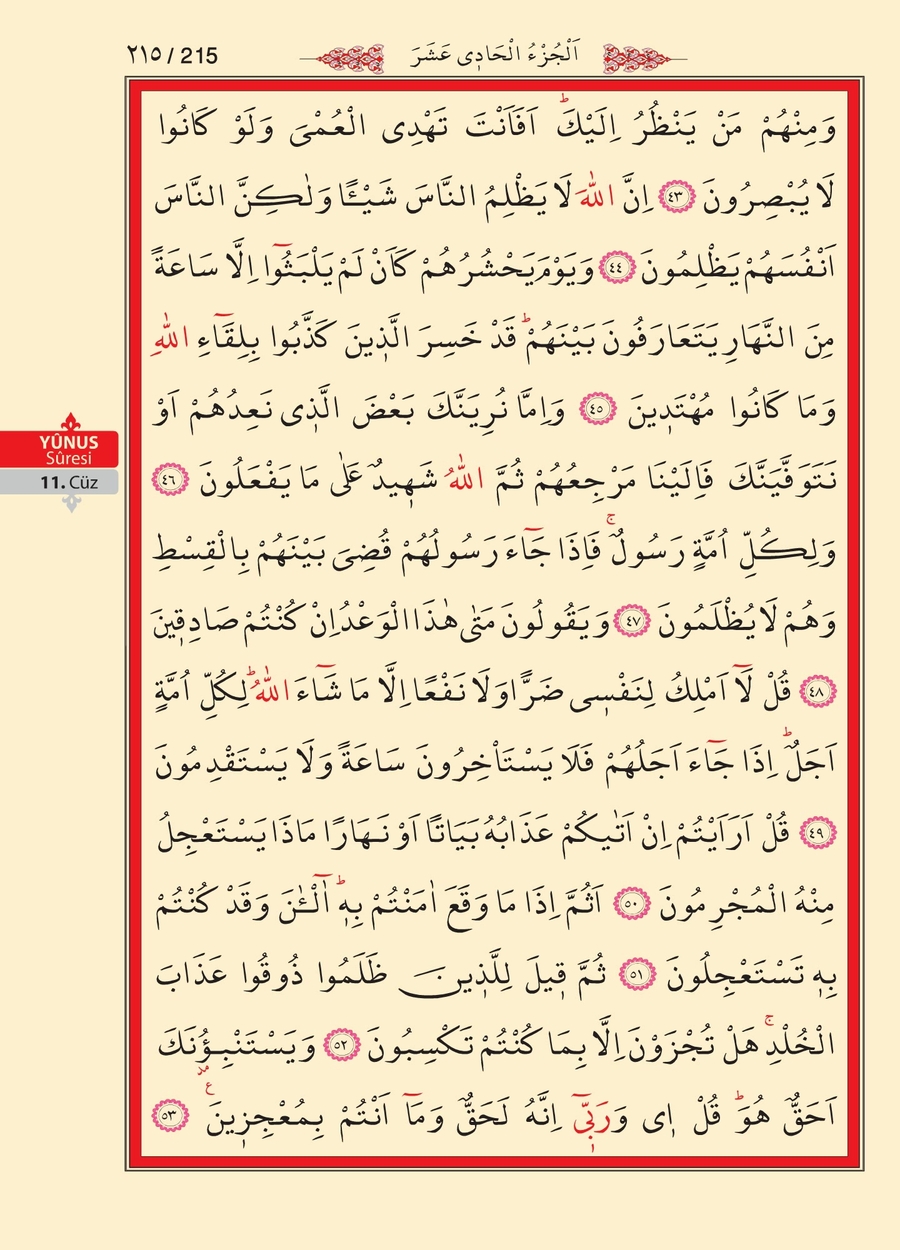 ٢١٥ / 215
اَلْجُزْءُ الْحَادِى عَشَرَ
وَمِنْهُمْ مَنْ يَنْظُرُ اِلَيْكَۜ اَفَاَنْتَ تَهْدِى الْعُمْىَ وَلَوْ كَانُوا
لَا يُبْصِرُونَ ﴿٤٣﴾ اِنَّ اللّٰهَ لَا يَظْلِمُ النَّاسَ شَيْـًٔا وَلٰكِنَّ النَّاسَ
اَنْفُسَهُمْ يَظْلِمُونَ ﴿٤٤﴾ وَيَوْمَ يَحْشُرُهُمْ كَاَنْ لَمْ يَلْبَثُٓوا اِلَّا سَاعَةً
مِنَ النَّهَارِ يَتَعَارَفُونَ بَيْنَهُمْۜ قَدْ خَسِرَ الَّذ۪ينَ كَذَّبُوا بِلِقَٓاءِ اللّٰهِ
وَمَا كَانُوا مُهْتَد۪ينَ ﴿٤٥﴾ وَاِمَّا نُرِيَنَّكَ بَعْضَ الَّذ۪ى نَعِدُهُمْ اَوْ
نَتَوَفَّيَنَّكَ فَاِلَيْنَا مَرْجِعُهُمْ ثُمَّ اللّٰهُ شَه۪يدٌ عَلٰى مَا يَفْعَلُونَ ﴿٤٦﴾
وَلِكُلِّ اُمَّةٍ رَسُولٌۚ فَاِذَا جَٓاءَ رَسُولُهُمْ قُضِىَ بَيْنَهُمْ بِالْقِسْطِ
وَهُمْ لَا يُظْلَمُونَ ﴿٤٧﴾ وَيَقُولُونَ مَتٰى هٰذَا الْوَعْدُ اِنْ كُنْتُمْ صَادِق۪ينَ
﴿٤٨﴾ قُلْ لَٓا اَمْلِكُ لِنَفْس۪ى ضَرًّا وَلَا نَفْعًا اِلَّا مَا شَٓاءَ اللّٰهُۜ لِكُلِّ اُمَّةٍ
اَجَلٌۜ اِذَا جَٓاءَ اَجَلُهُمْ فَلَا يَسْتَاْخِرُونَ سَاعَةً وَلَا يَسْتَقْدِمُونَ
﴿٤٩﴾ قُلْ اَرَاَيْتُمْ اِنْ اَتٰيكُمْ عَذَابُهُ بَيَاتًا اَوْ نَهَارًا مَاذَا يَسْتَعْجِلُ
مِنْهُ الْمُجْرِمُونَ ﴿٥٠﴾ اَثُمَّ اِذَا مَا وَقَعَ اٰمَنْتُمْ بِه۪ۜ آٰلْـٰٔنَ وَقَدْ كُنْتُمْ
بِه۪ تَسْتَعْجِلُونَ ﴿٥١﴾ ثُمَّ ق۪يلَ لِلَّذ۪ينَ ظَلَمُوا ذُوقُوا عَذَابَ
الْخُلْدِۚ هَلْ تُجْزَوْنَ اِلَّا بِمَا كُنْتُمْ تَكْسِبُونَ ﴿٥٢﴾ وَيَسْتَنْبِؤُ۫نَكَ
اَحَقٌّ هُوَۜ قُلْ ا۪ى وَرَبّ۪ٓى اِنَّهُ لَحَقٌّ وَمَٓا اَنْتُمْ بِمُعْجِز۪ينَ۟ ﴿٥٣﴾
YÛNUS
Sûresi
11. Cüz